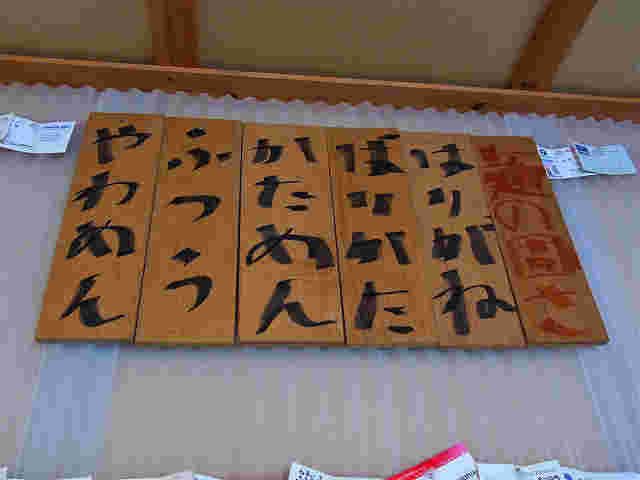 麺の固さ
はりがね
ばりかた
かためん
ふつう
やわめん